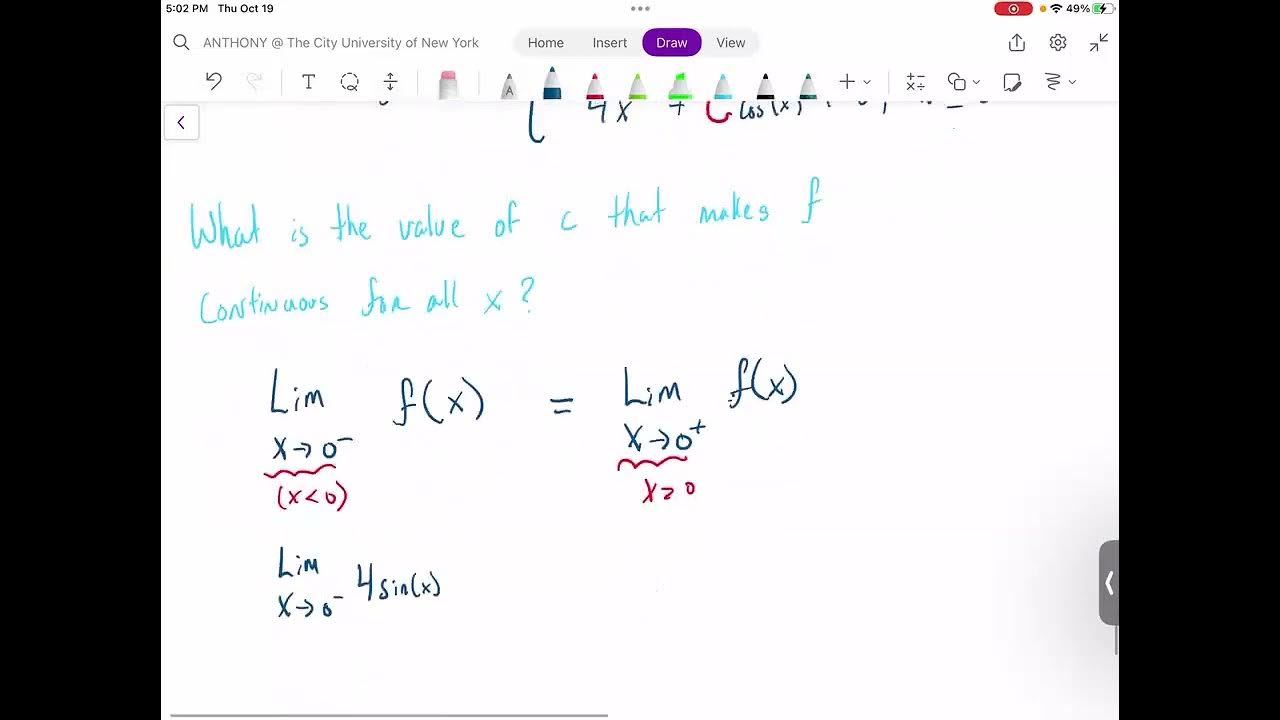 5:02 PM Thu Oct 19
49%
ANTHONY @ The City University of New York
Home Insert Draw View
4x + c cos(x)
What is the value of c that makes f
continuous for all x?
Lim f(x) = Lim f(x)
x→0⁻ x→0⁺
(x<0) x≥0
Lim 4sin(x)
x→0⁻